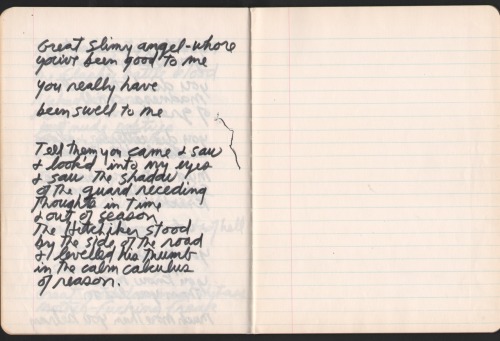 Great slimy angel-whore
you've been good to me
you really have
been swell to me
Tell them you came & saw
& look'd into my eyes
& saw the shadow
of the guard receding
Thoughts in time
& out of season
The Hitchiker stood
by the side of the road
& levelled his thumb
in the calm calculus
of reason.